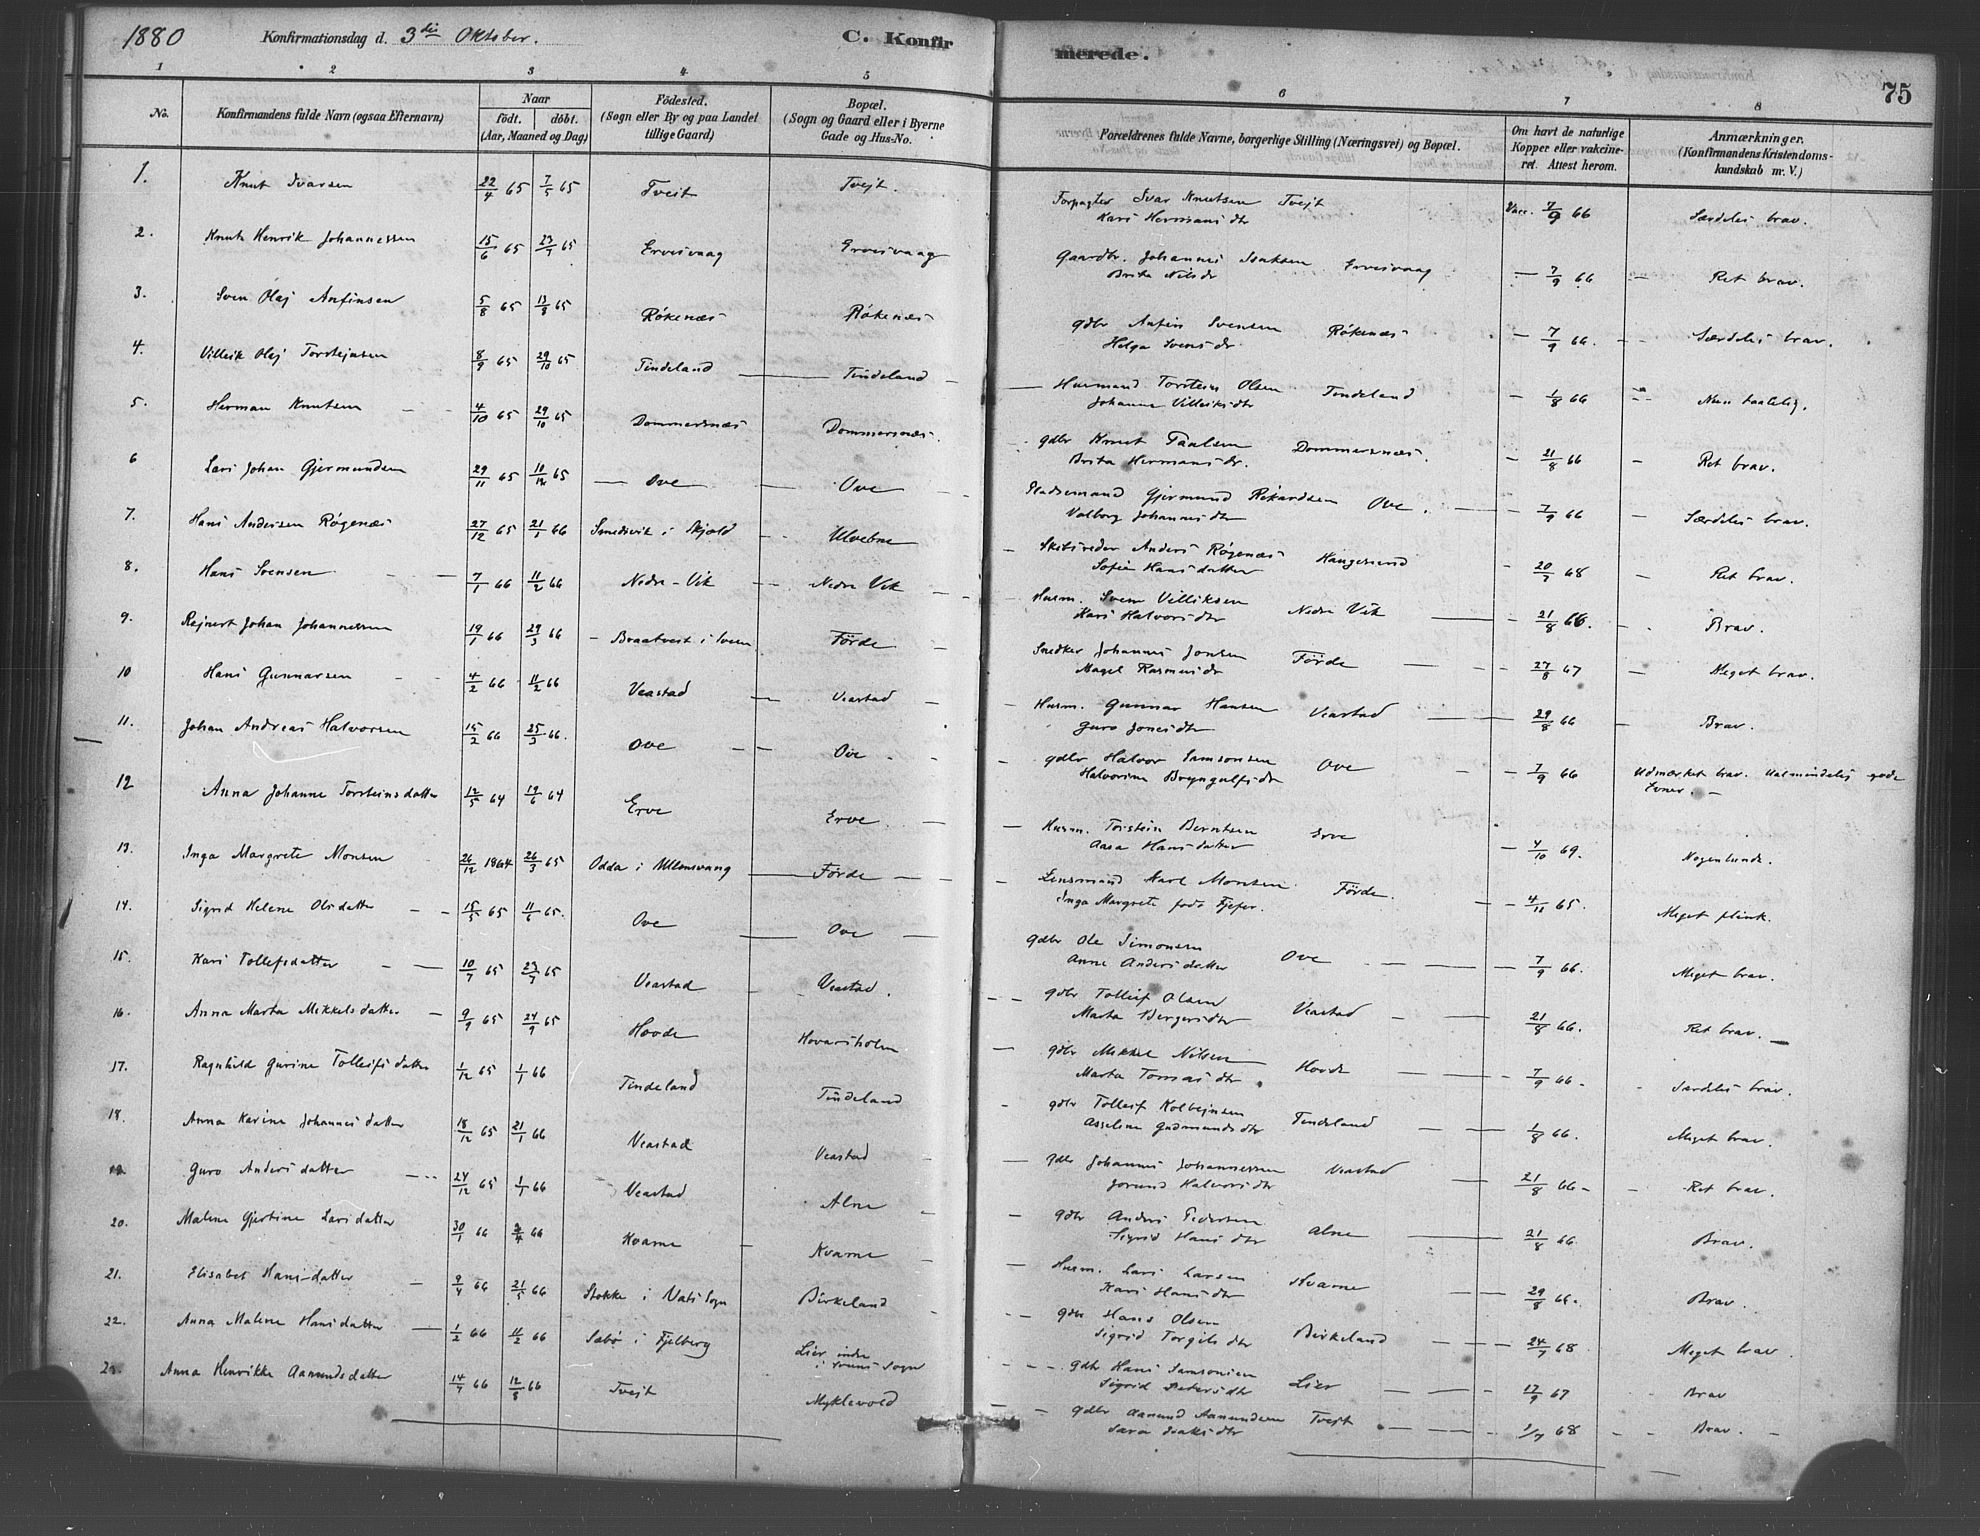 1880 Konfirmationsdag d. 3die Oktober. C. Konfirmerede. 75
1 2 3 4 5 6 7 8
No. Konfirmandens fulde Navn (ogsaa Efternavn) Naar født. døbt. (Aar, Maaned og Dag) Fødested. (Sogn eller By og paa Landet tillige Gaard) Bopæl. (Sogn og Gaard eller i Byerne Gade og Hus-No. Forældrenes fulde Navne, borgerlige Stilling (Næringsvei) og Bopæl. Om havt de naturlige Kopper eller vakcineret. Attest herom. Anmærkninger. (Konfirmandens Kristendomskundskab m. V.)
1. Knut Ivarsen 22/4 65 7/5 65 Tveit Tvejt. Forpagter Ivar Knutsen Tvejt Vacc. 7/9 66 Særdeles brav.
Kari Hermans dtr
2. Knut Henrik Johannessen 15/6 65 23/7 65 Ervesvaag Ervesvaag Gaardbr. Johannes Isaksen Ervesvaag — 7/9 66 — Ret brav.
Brita Nilsdr
3. Sven Olaj Anfinsen 5/8 65 13/8 65 Røkenæs Røkenæs gdbr Anfin Svensen Røkenæs — 7/9 66. Særdeles brav.
Helga Svensdr.
4. Villeik Olaj Torstejnsen 8/9 65 29/10 65 Tindeland Tindeland Husmand Torstein Olsen Tindeland — 1/8 66 Nun taalelig.
Johanna Villeiksdtr
5. Herman Knutsen 4/10 65 29/10 65 Dommersnæs Dommersnæs. gdbr Knut Paalsen Dommersnæs. — 21/8 66 — Ret brav.
Brita Hermansdr.
6 Lars Johan Gjermundsen 29/11 65 10/12 65 Ove Ove Pladsemand Gjermund Rikardsen Ove. 7/9 66 — Særdeles brav.
Valborg Johannesdtr
7. Hans Andersen Røgenæs 27/12 65 21/1 66 Smedsvik i Skjold Ulvebne Skibsreder Anders Røgenæs Haugesund 20/7 68 — Ret brav.
Sofie Hansdatter
8. Hans Svensen 7/1 66 11/2 66 Nedre-Vik Nedre Vik Husm. Sven Villiksen Nedre Vik 21/8 66. Brav.
Kari Halvorsdtr
9. Rejnert Johan Johannessen 19/1 66 29/3 66 Braatvest i Sveen Førde Snedker Johannes Jonsen Førde 27/8 67 — Meget brav.
Magel Rasmusdr
10 Hans Gunnarsen 4/2 66 11/2 66 Veastad Veastad Husm. Gunnar Hansen Veastad 29/8 66 — Brav.
Guro Jonesdtr
11. Johan Andreas Halvorsen 15/2 66 25/3 66. Ove Ove gdbr Halvor Samsonsen Ove 7/9 66 Udmærket brav. Ualmindelig gode
Halvorine Bryngulfsdtr Evner. —
12 Anna Johanne Torsteinsdatter 12/5 64 19/6 64 Erve Erve. Husm. Torstein Berntsen Erve — 4/10 69. Nogenlunde.
Aasa Hansdatter
13. Inga Margrete Monsen 26/12 1864 26/3 65 Odda i Ullensvang Førde Lensmand Karl Monsen Førde. 4/11 65. Meget flink.
Inga Margrete født Fjefer.
14. Sigrid Helene Olsdatter 15/5 65 11/6 65. Ove Ove gdbr Ole Simonsen Ove 7/9 66. Meget brav.
Anne Andersdatter
15. Kari Tollefsdatter 10/7 65 23/7 65 Veastad Veastad. gdbr Tollief Olsen Veastad 21/8 66. Ret brav.
Marta Bergersdtr
16. Anna Marta Mikkelsdatter 9/9 65 24/9 65 Hovde Hovarsholm gdbr Mikkel Nilsen Hovde 7/9 66. Særdeles brav.
Marta Tomasdtr
17. Ragnhild Gurine Tolleifsdatter 1/12 65 1/1 66 Tindeland Tindeland gdbr Tolleif Kolbejnsen Tindeland 1/8 66. Meget brav.
Asseline Gudmundsdtr
18. Anna Karine Johannesdatter 18/12 65 21/1 66 Veastad Veastad gdbr Johannes Johannessen Veastad 21/8 66 Ret brav.
Jorund Halvorsdtr
19. Guro Andersdatter 24/12 65 1/1 66 Veastad Alne gdbr Anders Pedersen Alne 21/8 66 Brav.
Sigrid Hansdtr
20. Malene Gjertine Larsdatter 30/1 66 2/4 66 Kvarne Kvarne Husm. Lars Larsen Kvarne 29/8 66. Brav.
Kari Hansdtr
21. Elisabet Hansdatter 9/4 66 21/5 66 Stokke i Vats Sogn Birkeland gdbr Hans Olsen Birkeland 24/7 68 Meget brav.
Sigrid Torgilsdtr
22. Anna Malene Hansdatter 1/2 66 11/2 66 Sæbø i Fjelberg Lier indre i Sveens Sogn gdbr Hans Samsonsen Lier 17/9 67 Brav
Sigrid Petersdtr
23. Anna Henrikke Aamundsdatter 14/7 66 12/8 66 Tvejt Myklevold gdbr Aamund Aamundsen Tvejt 1/7 68 Brav.
Sara Isaksdtr